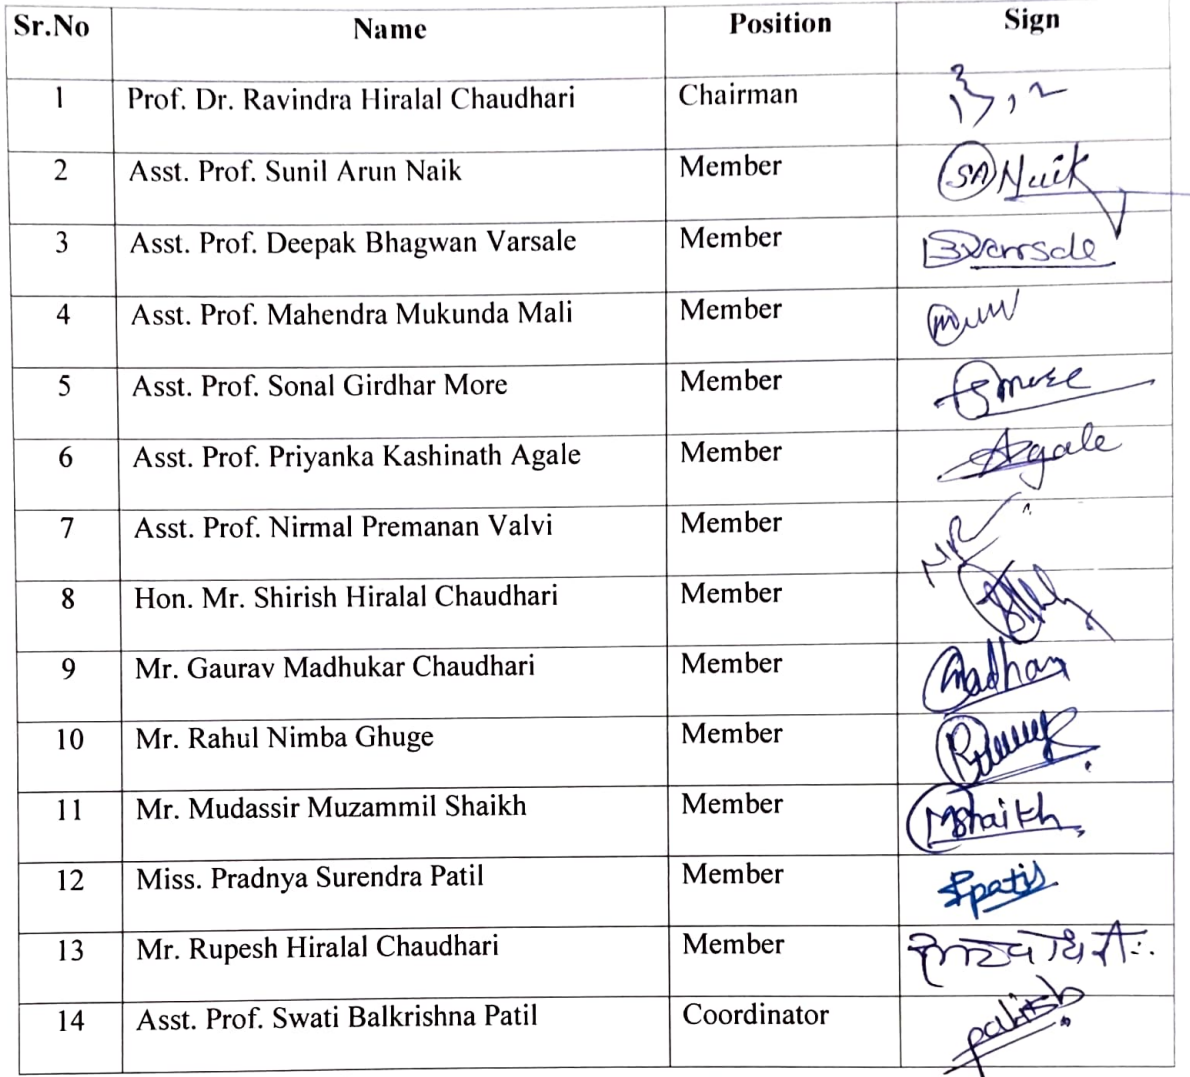 Sr.No Name Position Sign
1 Prof. Dr. Ravindra Hiralal Chaudhari Chairman
2 Asst. Prof. Sunil Arun Naik Member SA Naik
3 Asst. Prof. Deepak Bhagwan Varsale Member DBVarsale
4 Asst. Prof. Mahendra Mukunda Mali Member
5 Asst. Prof. Sonal Girdhar More Member more
6 Asst. Prof. Priyanka Kashinath Agale Member Agale
7 Asst. Prof. Nirmal Premanan Valvi Member
8 Hon. Mr. Shirish Hiralal Chaudhari Member
9 Mr. Gaurav Madhukar Chaudhari Member
10 Mr. Rahul Nimba Ghuge Member
11 Mr. Mudassir Muzammil Shaikh Member MShaikh
12 Miss. Pradnya Surendra Patil Member
13 Mr. Rupesh Hiralal Chaudhari Member
14 Asst. Prof. Swati Balkrishna Patil Coordinator